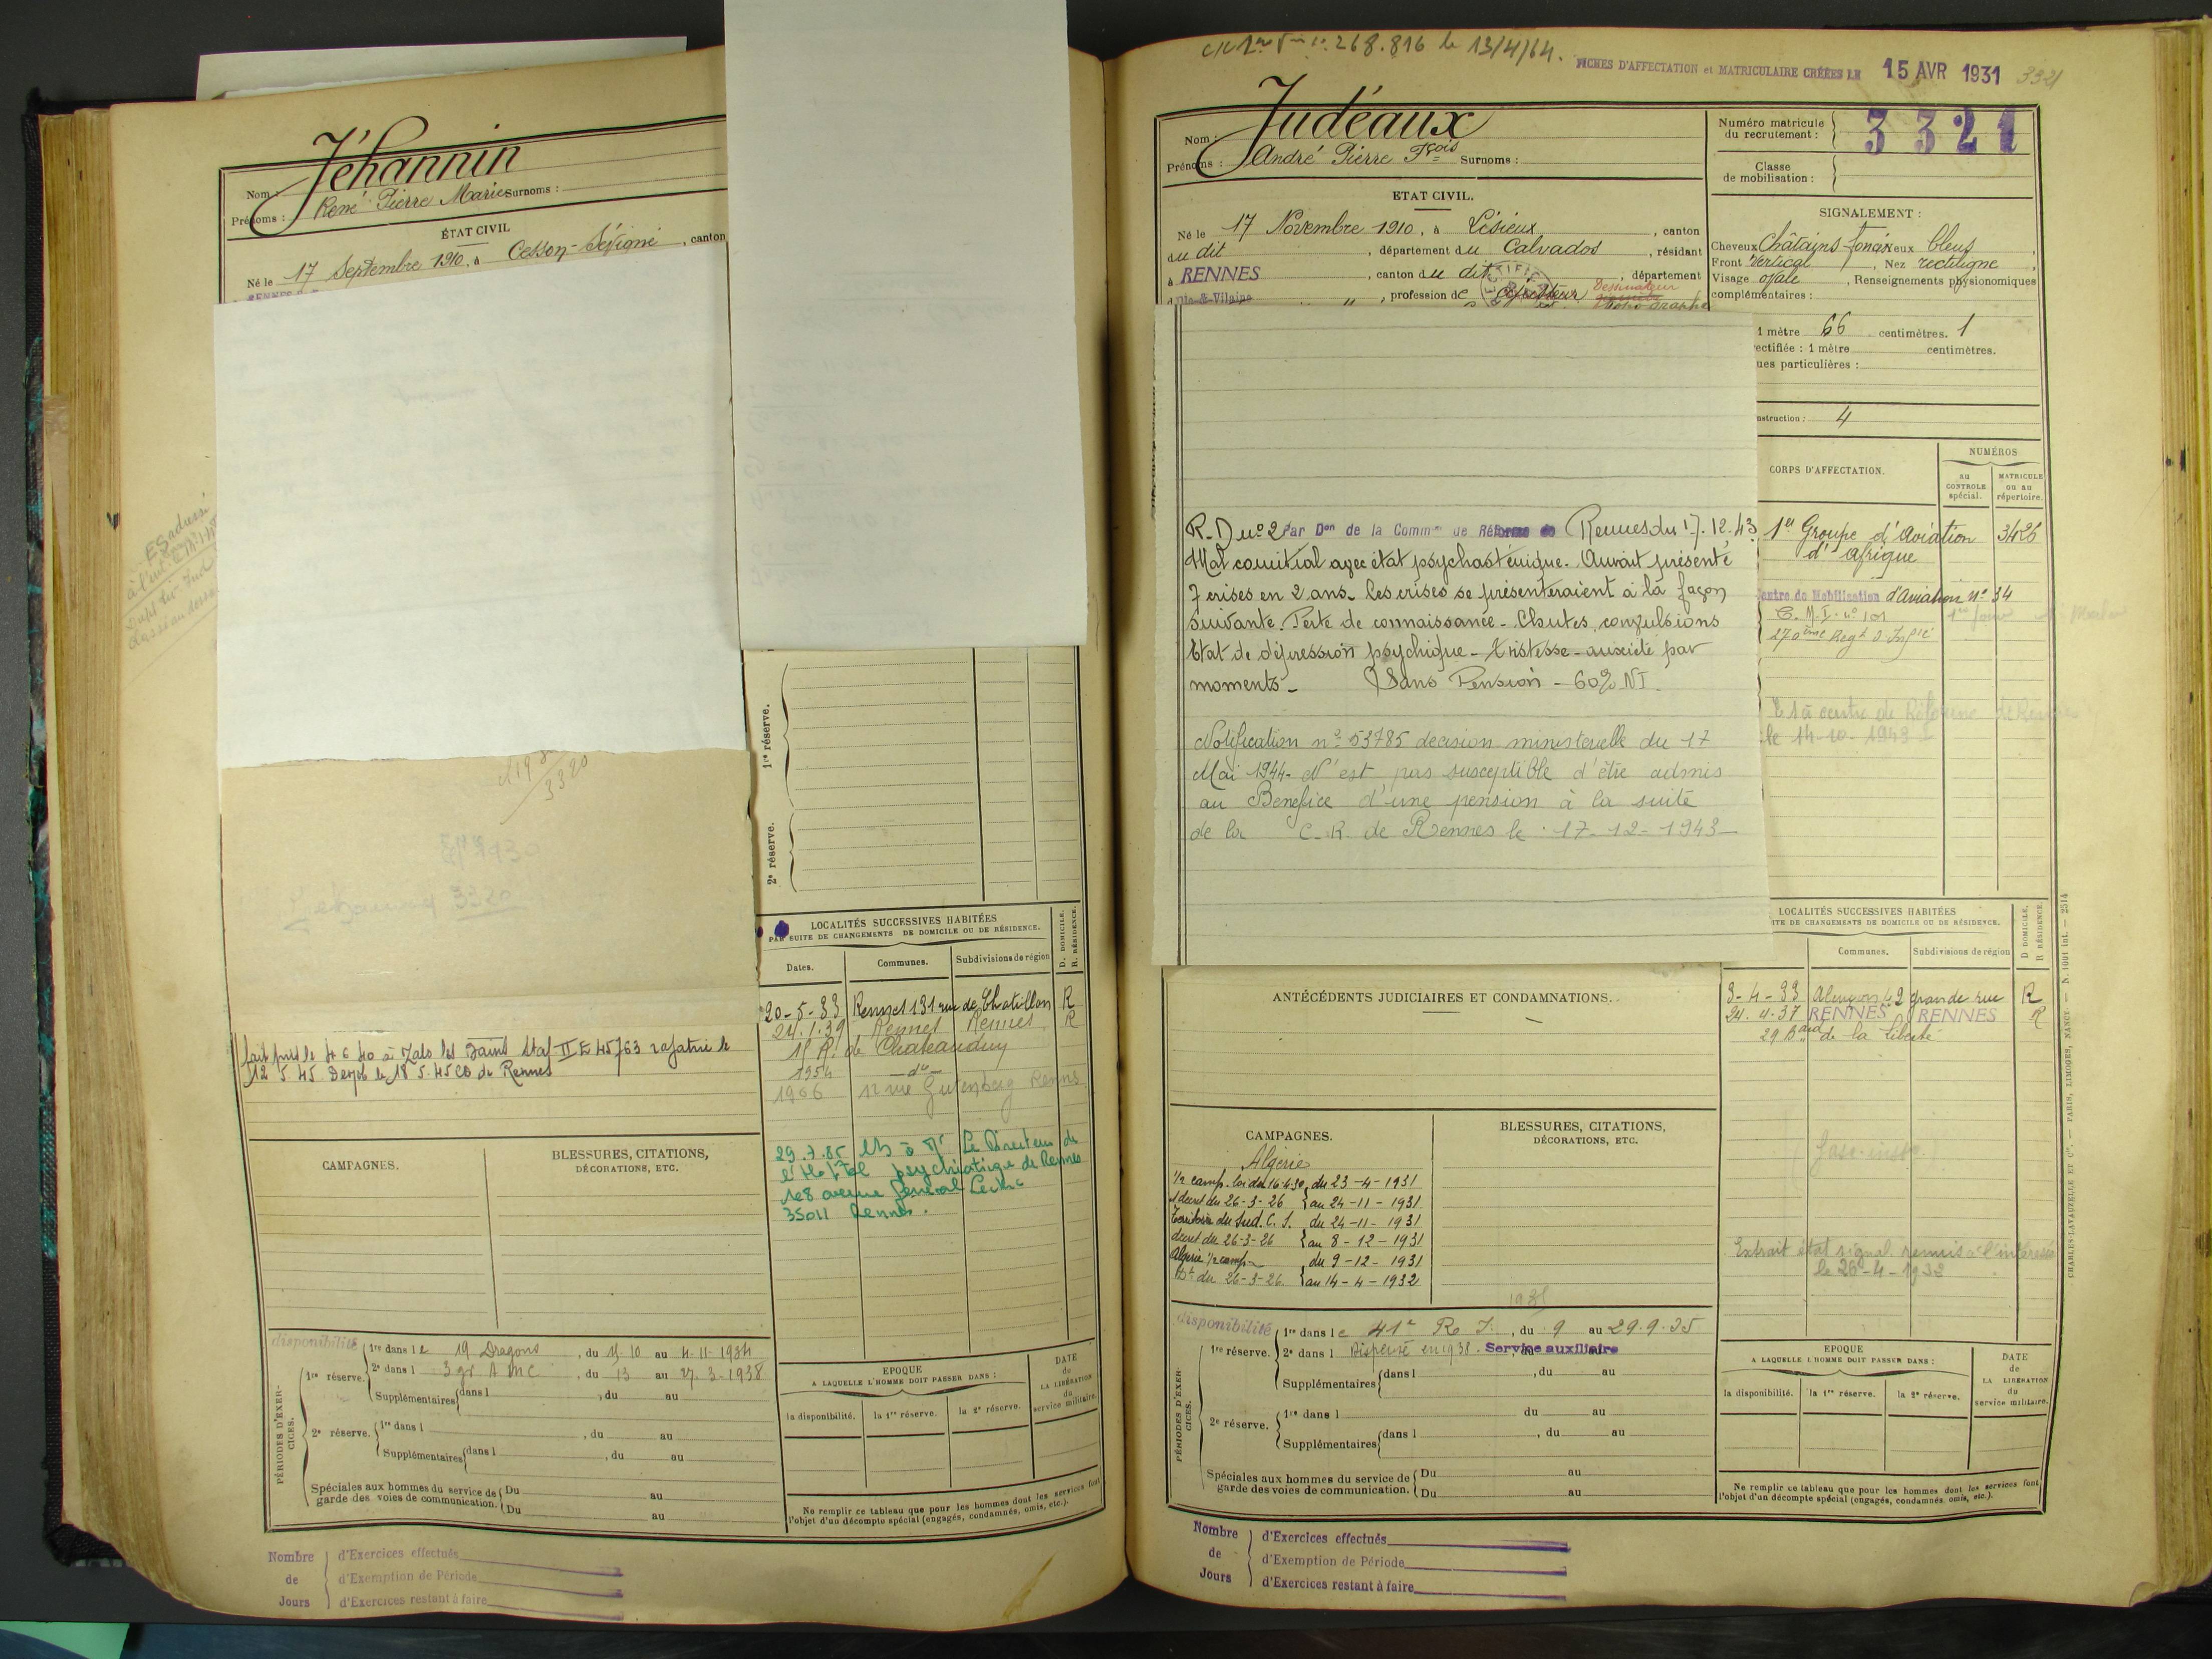 Jéhannin
Nom :
Prénoms : René Pierre Marie Surnoms :
ÉTAT CIVIL
Né le 17 Septembre 1910, à Cesson-Sévigné, canton
3320
Jéhannin 3320
fait pris le 4 6 40 à
12 5 45 Démob le 18 5 45 CD de Rennes
1re réserve.
2e réserve.
LOCALITÉS SUCCESSIVES HABITÉES
PAR SUITE DE CHANGEMENTS DE DOMICILE OU DE RÉSIDENCE.
D. DOMICILE.
R. RÉSIDENCE.
Dates. Communes. Subdivisions de région
20-5-33 Rennes 131 rue de Chatillon R
24.1.39 Rennes Rennes R
18 R. de Chateaudun
1954 - do -
1966 12 rue Gutenberg Rennes
29.7.85 Le Directeur de
l'Hôpital psychiatique de Rennes
108 avenue Général Leclerc
35011 Rennes.
CAMPAGNES.
BLESSURES, CITATIONS,
DÉCORATIONS, ETC.
disponibilité
PÉRIODES D'EXERCICES.
1re réserve. 1re dans le 19 Dragons, du 15.10 au 4-11-1934
2e dans l 3 gr A M C, du 13 au 27.3-1938
Supplémentaires dans l , du au
2e réserve. 1re dans l , du au
Supplémentaires dans l , du au
Spéciales aux hommes du service de garde des voies de communication. Du au
Du au
EPOQUE
A LAQUELLE L'HOMME DOIT PASSER DANS :
DATE
de
LA LIBÉRATION
du
service militaire.
la disponibilité. la 1re réserve. la 2e réserve.
Ne remplir ce tableau que pour les hommes dont les services font
l'objet d'un décompte spécial (engagés, condamnés, omis, etc.).
Nombre de Jours
d'Exercices effectués
d'Exemption de Période
d'Exercices restant à faire
268.816 le 13/4/64.
FICHES D'AFFECTATION et MATRICULAIRE CRÉÉES LE 15 AVR 1931 3321
Judéaux
Nom :
Prénoms : André Pierre Fçois Surnoms :
Numéro matricule
du recrutement : 3321
Classe
de mobilisation :
ETAT CIVIL.
Né le 17 Novembre 1910, à Lisieux, canton
du dit, département du Calvados, résidant
à RENNES, canton du dit, département
d'Ille-&-Vilaine, profession de Dessinateur
SIGNALEMENT :
Cheveux Châtains foncés Yeux bleus
Front Vertical, Nez rectiligne
Visage ovale, Renseignements physionomiques
complémentaires :
1 mètre 66 centimètres. 1
rectifiée : 1 mètre centimètres.
ues particulières :
nstruction : 4
CORPS D'AFFECTATION.
NUMÉROS
AU CONTROLE spécial.
MATRICULE ou au répertoire.
1er Groupe d'Aviation 3426
d'Afrique
Centre de Mobilisation d'Aviation no 34
C. M. I. no 101
270ème Regt d'Infie
à centre de Réforme de Rennes
le 14-10-1943
R. D no 2 Par Don de la Common de Réforme de Rennes du 17.12.43
Mal comitial avec état psychasténique. Aurait présenté
7 crises en 2 ans. Les crises se présenteraient à la façon
suivante. Perte de connaissance - Chutes, convulsions
Etat de dépression psychique - tristesse - anxiété par
moments - Sans Pension - 60% NI
Notification no 53785 decision ministerielle du 17
Mai 1944- N'est pas susceptible d'être admis
au Benefice d'une pension à la suite
de la C. R. de Rennes le 17-12-1943-
LOCALITÉS SUCCESSIVES HABITÉES
ITE DE CHANGEMENTS DE DOMICILE OU DE RÉSIDENCE.
D. DOMICILE.
R. RÉSIDENCE.
Communes. Subdivisions de région
3-4-33 Alençon 42 grande rue R
24.4.37 RENNES RENNES R
29 Bard de la liberté
Extrait état signal remis à l'intéressé
le 26-4-1932
ANTÉCÉDENTS JUDICIAIRES ET CONDAMNATIONS.
CAMPAGNES.
BLESSURES, CITATIONS,
DÉCORATIONS, ETC.
Algérie
1/2 camp. loi du 16-4-30, du 23-4-1931
décret du 26-3-26 au 24-11-1931
territoire du Sud. C. S. du 24-11-1931
decret du 26-3-26 au 8-12-1931
Algérie 1/2 camp- du 9-12-1931
Dt du 26-3-26. au 14-4-1932
disponibilité
PÉRIODES D'EXERCICES.
1re réserve. 1re dans le 41e R. I., du 9 au 29.9.35
2e dans l Dispensé en 1938. Service auxiliaire
Supplémentaires dans l , du au
2e réserve. 1re dans l du au
Supplémentaires dans l , du au
Spéciales aux hommes du service de garde des voies de communication. Du au
Du au
EPOQUE
A LAQUELLE L'HOMME DOIT PASSER DANS :
DATE
de
LA LIBÉRATION
du
service militaire.
la disponibilité. la 1re réserve. la 2e réserve.
Ne remplir ce tableau que pour les hommes dont les services font
l'objet d'un décompte spécial (engagés, condamnés, omis, etc.).
CHARLES-LAVAUZELLE ET Cie. — PARIS, LIMOGES, NANCY. — N. 1001 int. — 2514
Nombre de Jours
d'Exercices effectués
d'Exemption de Période
d'Exercices restant à faire